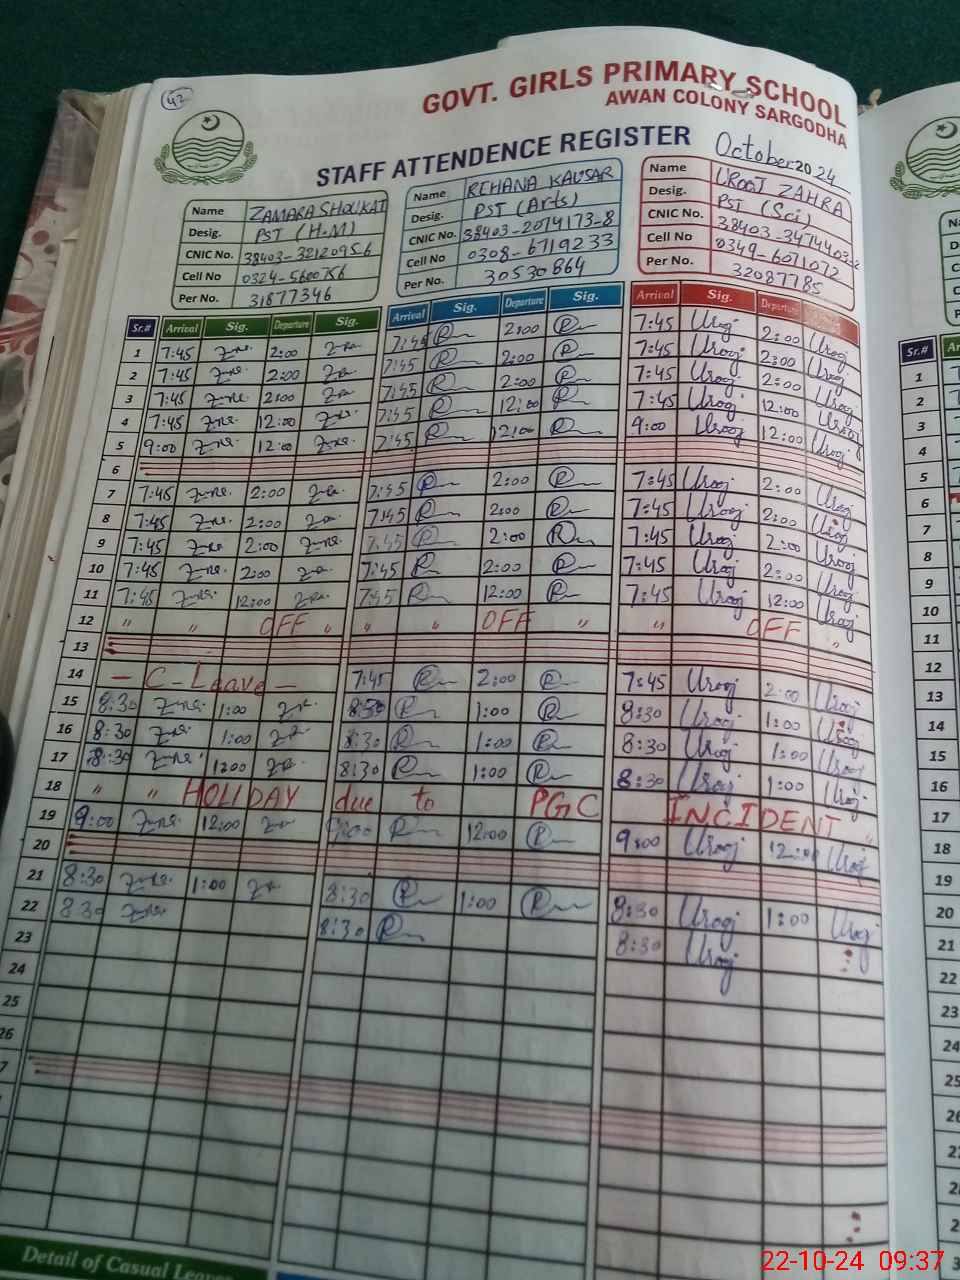 42
GOVT. GIRLS PRIMARY SCHOOL
AWAN COLONY SARGODHA
STAFF ATTENDENCE REGISTER October 2024
Name ZAMARA SHOUKAT
Desig. PST (H.M)
CNIC No. 38403-3212095-6
Cell No 0324-5600756
Per No. 31877346
Name REHANA KAUSAR
Desig. PST (Arts)
CNIC No. 38403-2074173-8
Cell No 0308-6719233
Per No. 30530864
Name UROOJ ZAHRA
Desig. PST (Sci)
CNIC No. 38403-3474403
Cell No 0349-6071072
Per No. 32087785
Sr.# Arrival Sig. Departure Sig. Arrival Sig. Departure Sig. Arrival Sig. Departure
1 7:45 2:00 7:45 2:00 7:45 Urooj 2:00 Urooj
2 7:45 2:00 7:45 2:00 7:45 Urooj 2:00 Urooj
3 7:45 2:00 7:45 2:00 7:45 Urooj 2:00 Urooj
4 7:45 12:00 7:45 12:00 7:45 Urooj 12:00 Urooj
5 9:00 12:00 7:45 12:00 9:00 Urooj 12:00 Urooj
6
7 7:45 2:00 7:45 2:00 7:45 Urooj 2:00 Urooj
8 7:45 2:00 7:45 2:00 7:45 Urooj 2:00 Urooj
9 7:45 2:00 7:45 2:00 7:45 Urooj 2:00 Urooj
10 7:45 2:00 7:45 2:00 7:45 Urooj 2:00 Urooj
11 7:45 12:00 7:45 12:00 7:45 Urooj 12:00 Urooj
12 " " OFF " " " OFF " " OFF "
13
14 - C-Leave - 7:45 2:00 7:45 Urooj 2:00 Urooj
15 8:30 1:00 8:30 1:00 8:30 Urooj 1:00 Urooj
16 8:30 1:00 8:30 1:00 8:30 Urooj 1:00 Urooj
17 8:30 1:00 8:30 1:00 8:30 Urooj 1:00 Urooj
18 " " HOLIDAY due to PGC INCIDENT "
19 9:00 12:00 9:00 12:00 9:00 Urooj 12:00 Urooj
20
21 8:30 1:00 8:30 1:00 8:30 Urooj 1:00 Urooj
22 8:30 8:30 8:30 Urooj
23
24
25
26
Detail of Casual Leave
Sr.#
1
2
3
4
5
6
7
8
9
10
11
12
13
14
15
16
17
18
19
20
21
22
23
24
25
26
22-10-24 09:37